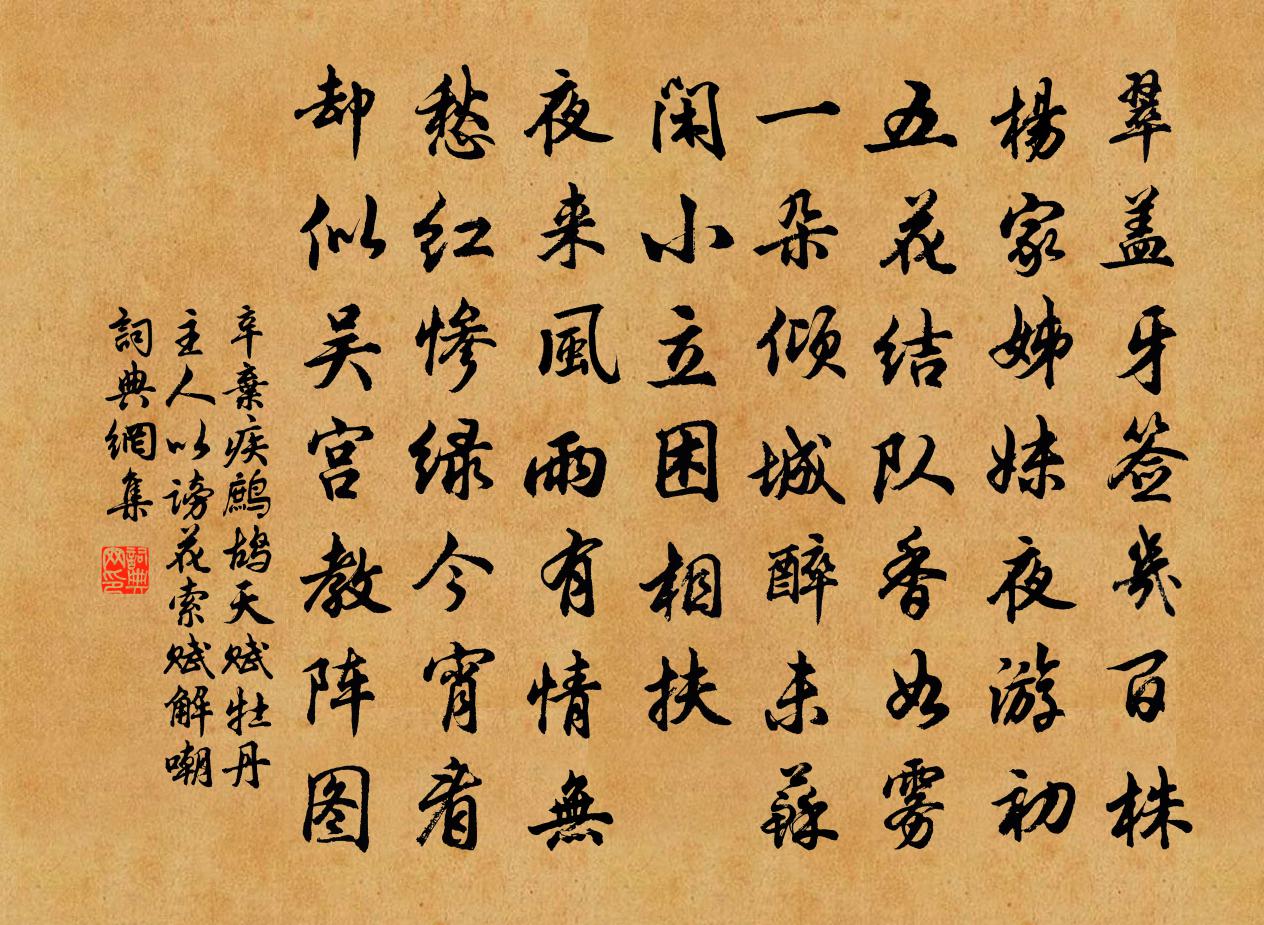 翠盖牙签几百株
楊家姊妹夜游初
五花结队香如雾
一朵倾城醉未蘇
闲小立困相扶
夜来風雨有情無
愁红惨绿今宵看
却似吴宫教阵图
辛棄疾鹧鸪天赋牡丹
主人以谤花索赋解嘲
詞典網集
詞典网印